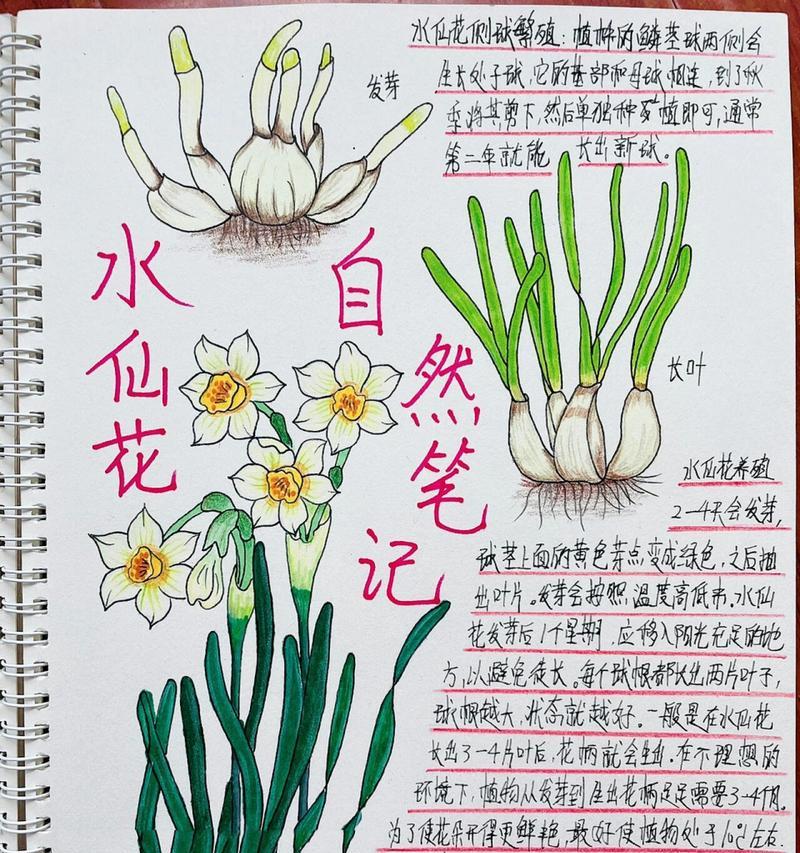 水仙花侧球繁殖:植株的鳞茎球两侧会
生长处子球,它的基部和母球相连,到了秋
季将其剪下,然后单独种植即可,通常
第二年就能长出新球。
发芽
水仙花
自然笔记
长叶
水仙花养殖
2-4天会发芽,
球茎上面的黄色芽点变成绿色,之后抽
出叶片。发芽会按照温度高低而.水仙
花发芽后1个星期,应移入阳光充足的地
方,以避免徒长。每个球根都长出两片叶子,
球根越大,状态就越好。一般是在水仙花
长出3-4片叶后,花柄就会生出。在不理想的
环境下,植物从发芽到生出花柄足足需要3-4个月.
为了使花朵开得更鲜艳,最好使植物处于10℃左右.